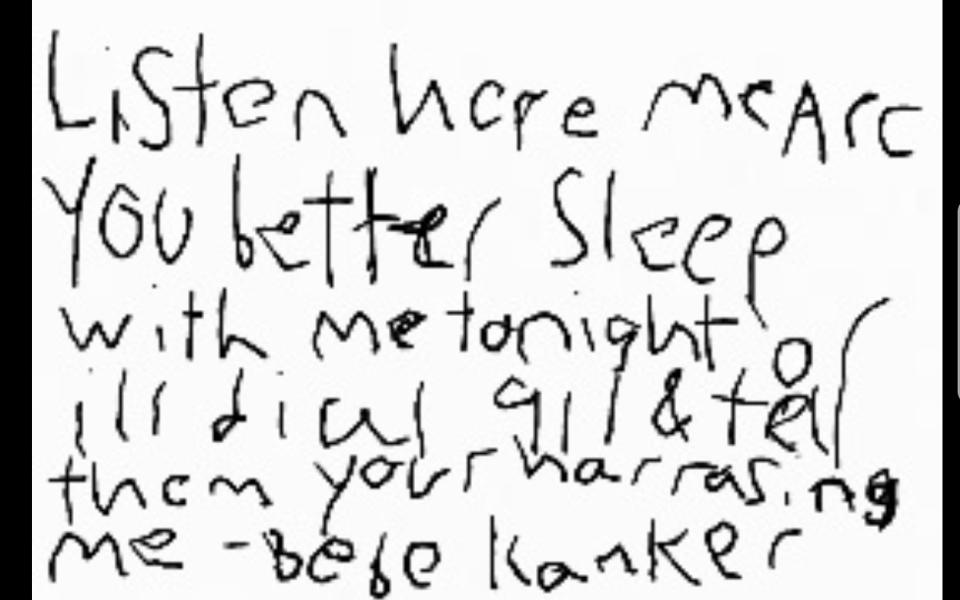 Listen here mcArc
You better Sleep
with me tonight or
ill dial 911 & tell
them your harrasing
me - Bebe Kanker